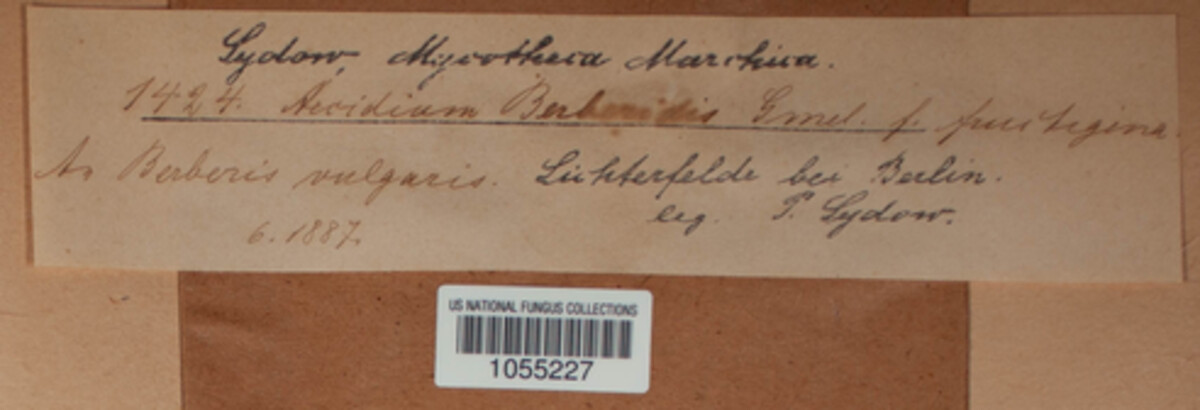 Sydow, Mycotheca Marchica.
1424. Aecidium Berberidis Gmel. f. fructigena.
An Berberis vulgaris. Lichterfelde bei Berlin.
6. 1887. leg. P. Sydow.
US NATIONAL FUNGUS COLLECTIONS
1055227